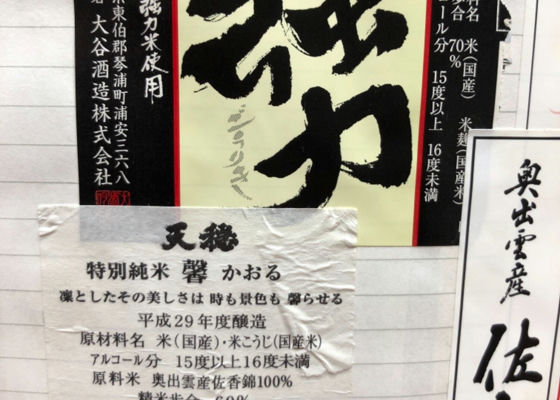 強力米使用
県東伯郡琴浦町浦安三六八
大谷酒造株式会社
強力
ごうりき
料名 米(国産) 米麹(国産米)
歩合 70%
コール分 15度以上 16度未満
天穏
特別純米 馨 かおる
凜としたその美しさは 時も景色も 馨らせる
平成29年度醸造
原材料名 米(国産)・米こうじ(国産米)
アルコール分 15度以上16度未満
原料米 奥出雲産佐香錦100%
精米歩合 60%
奥出雲産
佐